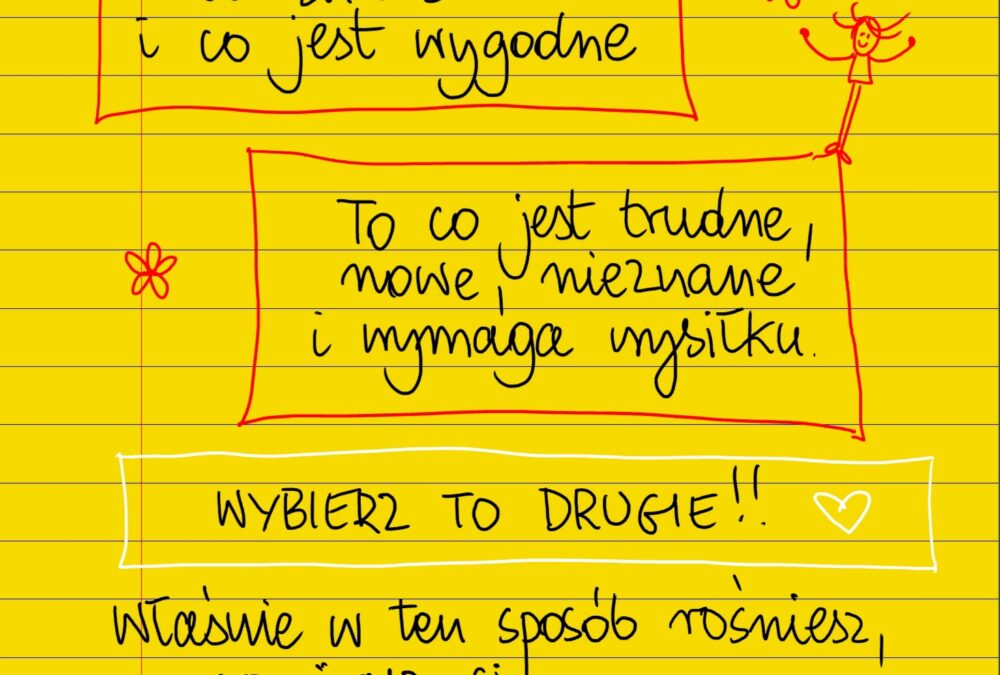 i co jest wygodne
To co jest trudne,
nowe, nieznane
i wymaga wysiłku.
WYBIERZ TO DRUGIE!!
Właśnie w ten sposób rośniesz,